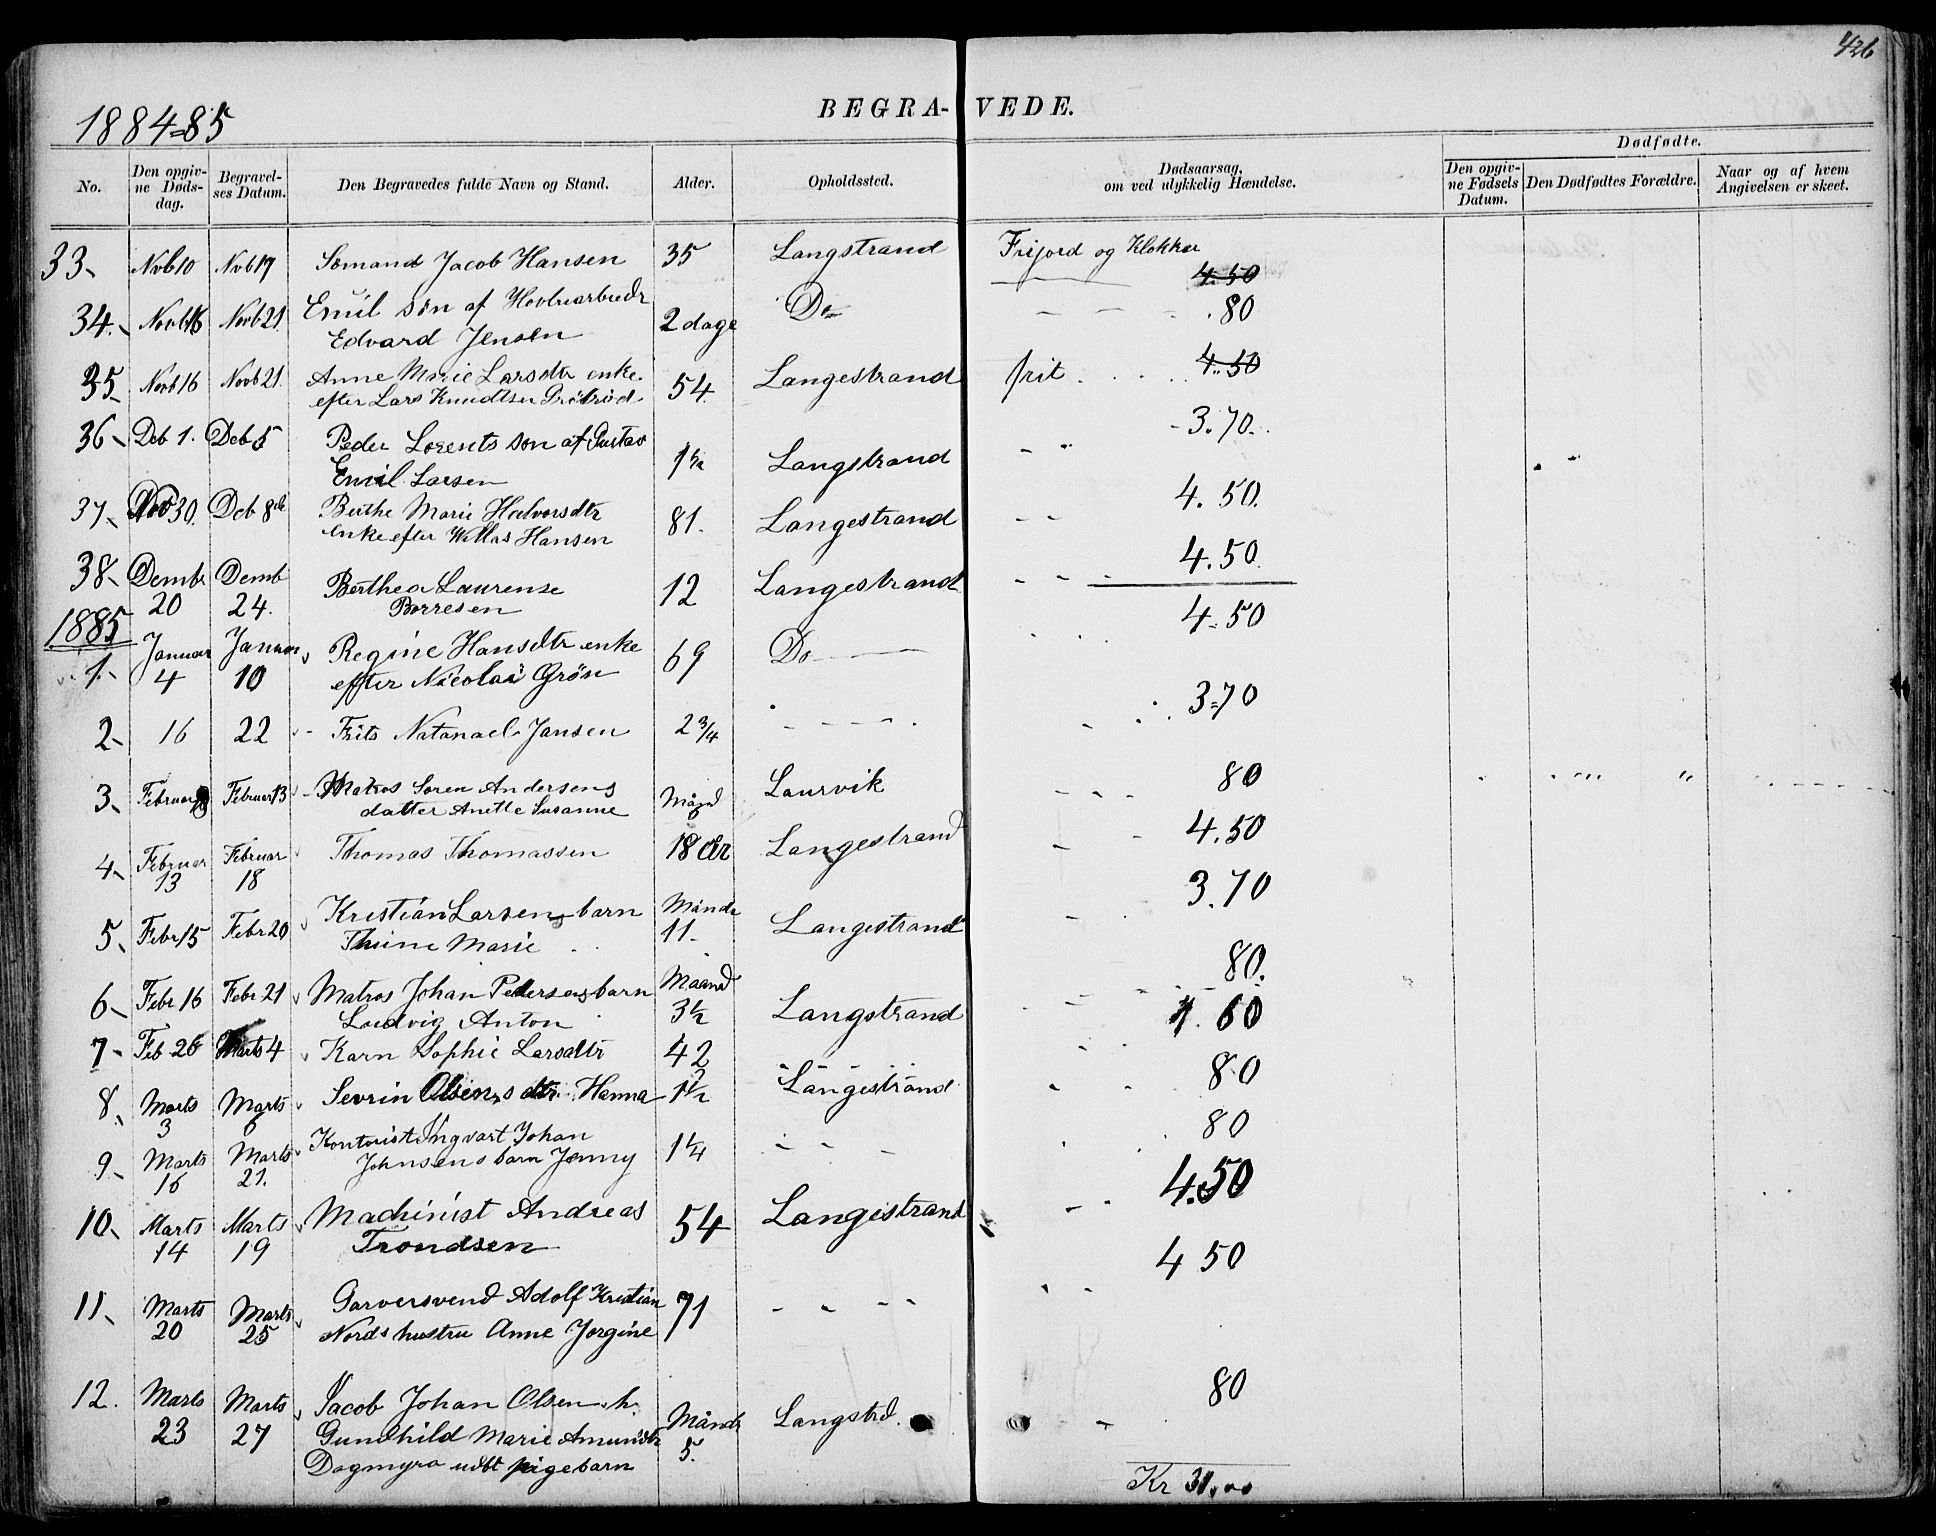 426
1884-85
BEGRAVEDE.
No.
Den opgivne Dødsdag.
Begravelses Datum.
Den Begravedes fulde Navn og Stand.
Alder.
Opholdssted.
Dødsaarsag, om ved ulykkelig Hændelse.
Dødfødte.
Den opgivne Fødsels Datum.
Den Dødfødtes Forældre.
Naar og af hvem Angivelsen er skeet.
33. Novb 10 Novb 17 Sömand Jacob Hansen 35 Langstrand Frijord og Klokker
4.50
34. Novb 16 Novb 21. Emil sön af 2 dage Do .80
Edvard Jensen
35. Novb 16 Novb 21. Anne Marie Larsdtr enke 54. Langestrand frit 4.50
efter Lars Knudtsen
36. Deb 1. Deb 5 Peder Lorents son af Gustav 1½ Langstrand 3.70
Emil Larsen
37. Nov 30. Deb 8de Berthe Marie Halvorsdtr 81. Langestrand 4.50.
enke efter Hansen
38. Dembr 20 Demb 24. Berthea Laurense 12 Langestrand 4.50
Borresen
1885
1. Januar 4 Januar 10 Regine Hansdtr enke 69 Do 4.50
efter Nicolai Grön
2. 16 22 Frits Natanael Jansen 2 3/4 3.70
3. Februar 8 Februar 13 Matros Soren Andersens Månd 6 Laurvik 80
datter Anette Susanne
4. Februar 13 Februar 18 Thomas Thomassen 18 År Langestrand 4.50
5. Febr 15 Febr 20 Kristian Larsens barn Måndr 11. Langestrand 3.70
Thrine Marie
6. Febr 16 Febr 21 Matros Johan Pedersens barn Maand 3½ Langstrand 80.
Ludvig Anton
7. Feb 26 Marts 4 Karn Sophie Larsdtr 42 4.60
8. Marts 3 Marts 6 Sevrin Olsens dtr Hanna 1½ Langestrand 80
9. Marts 16 Marts 21. Kontorist Ingvart Johan 1¼ 80
Johnsens barn Jenny
10. Marts 14 Marts 19 Machinist Andreas 54 Langestrand 4.50
Trondsen
11. Marts 20 Marts 25 Garversvend Adolf Kristian 71 4 50
Nords hustru Anne Jorgine
12. Marts 23 Marts 27 Jacob Johan Olsen h. Måndr 5. Langstrd. 80
Gundhild Marie Amundtr
Dagmyra udbt pigebarn
Kr 31.00